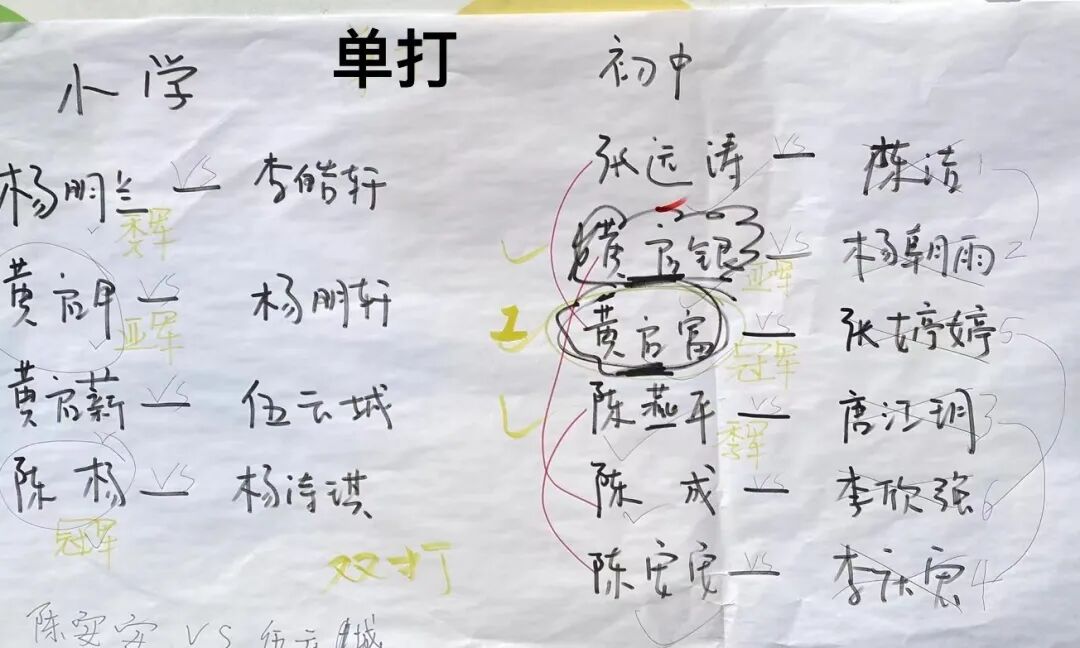 单打
小学
杨明兰 VS 李皓轩
季军
黄启甲 VS 杨明轩
亚军
黄启薪 VS 伍云城
陈杨 VS 杨涛淇
冠军
初中
张远涛 VS 陈洁 1
黄启银 VS 杨朝雨 2
亚军
1 黄启富 VS 张婷婷 5
冠军
陈燕平 VS 唐江玥 3
季军
陈成 VS 李欣强 6
陈安安 VS 李 4
双打
陈安安 VS 伍云城